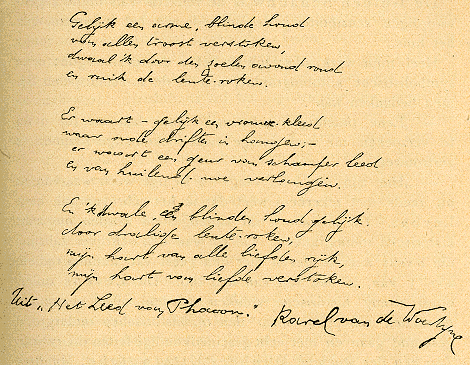 Gelijk een arme, blinde hond
van allen troost verstoken,
dwaal 'k door den zoelen avond rond
en ruik de lente-roken.
Er waart - gelijk een vrouwe-kleed
waar oude drifte in hangen, -
er waart een geur van schamper leed
en van huilend verlangen.
En 'k dwale, een blinden hond gelijk
door dralige lente-roken,
mijn hart van alle liefden rijk,
mijn hart van liefde verstoken.
Uit „Het Leed van Phaoon." Karel van de Woestijne